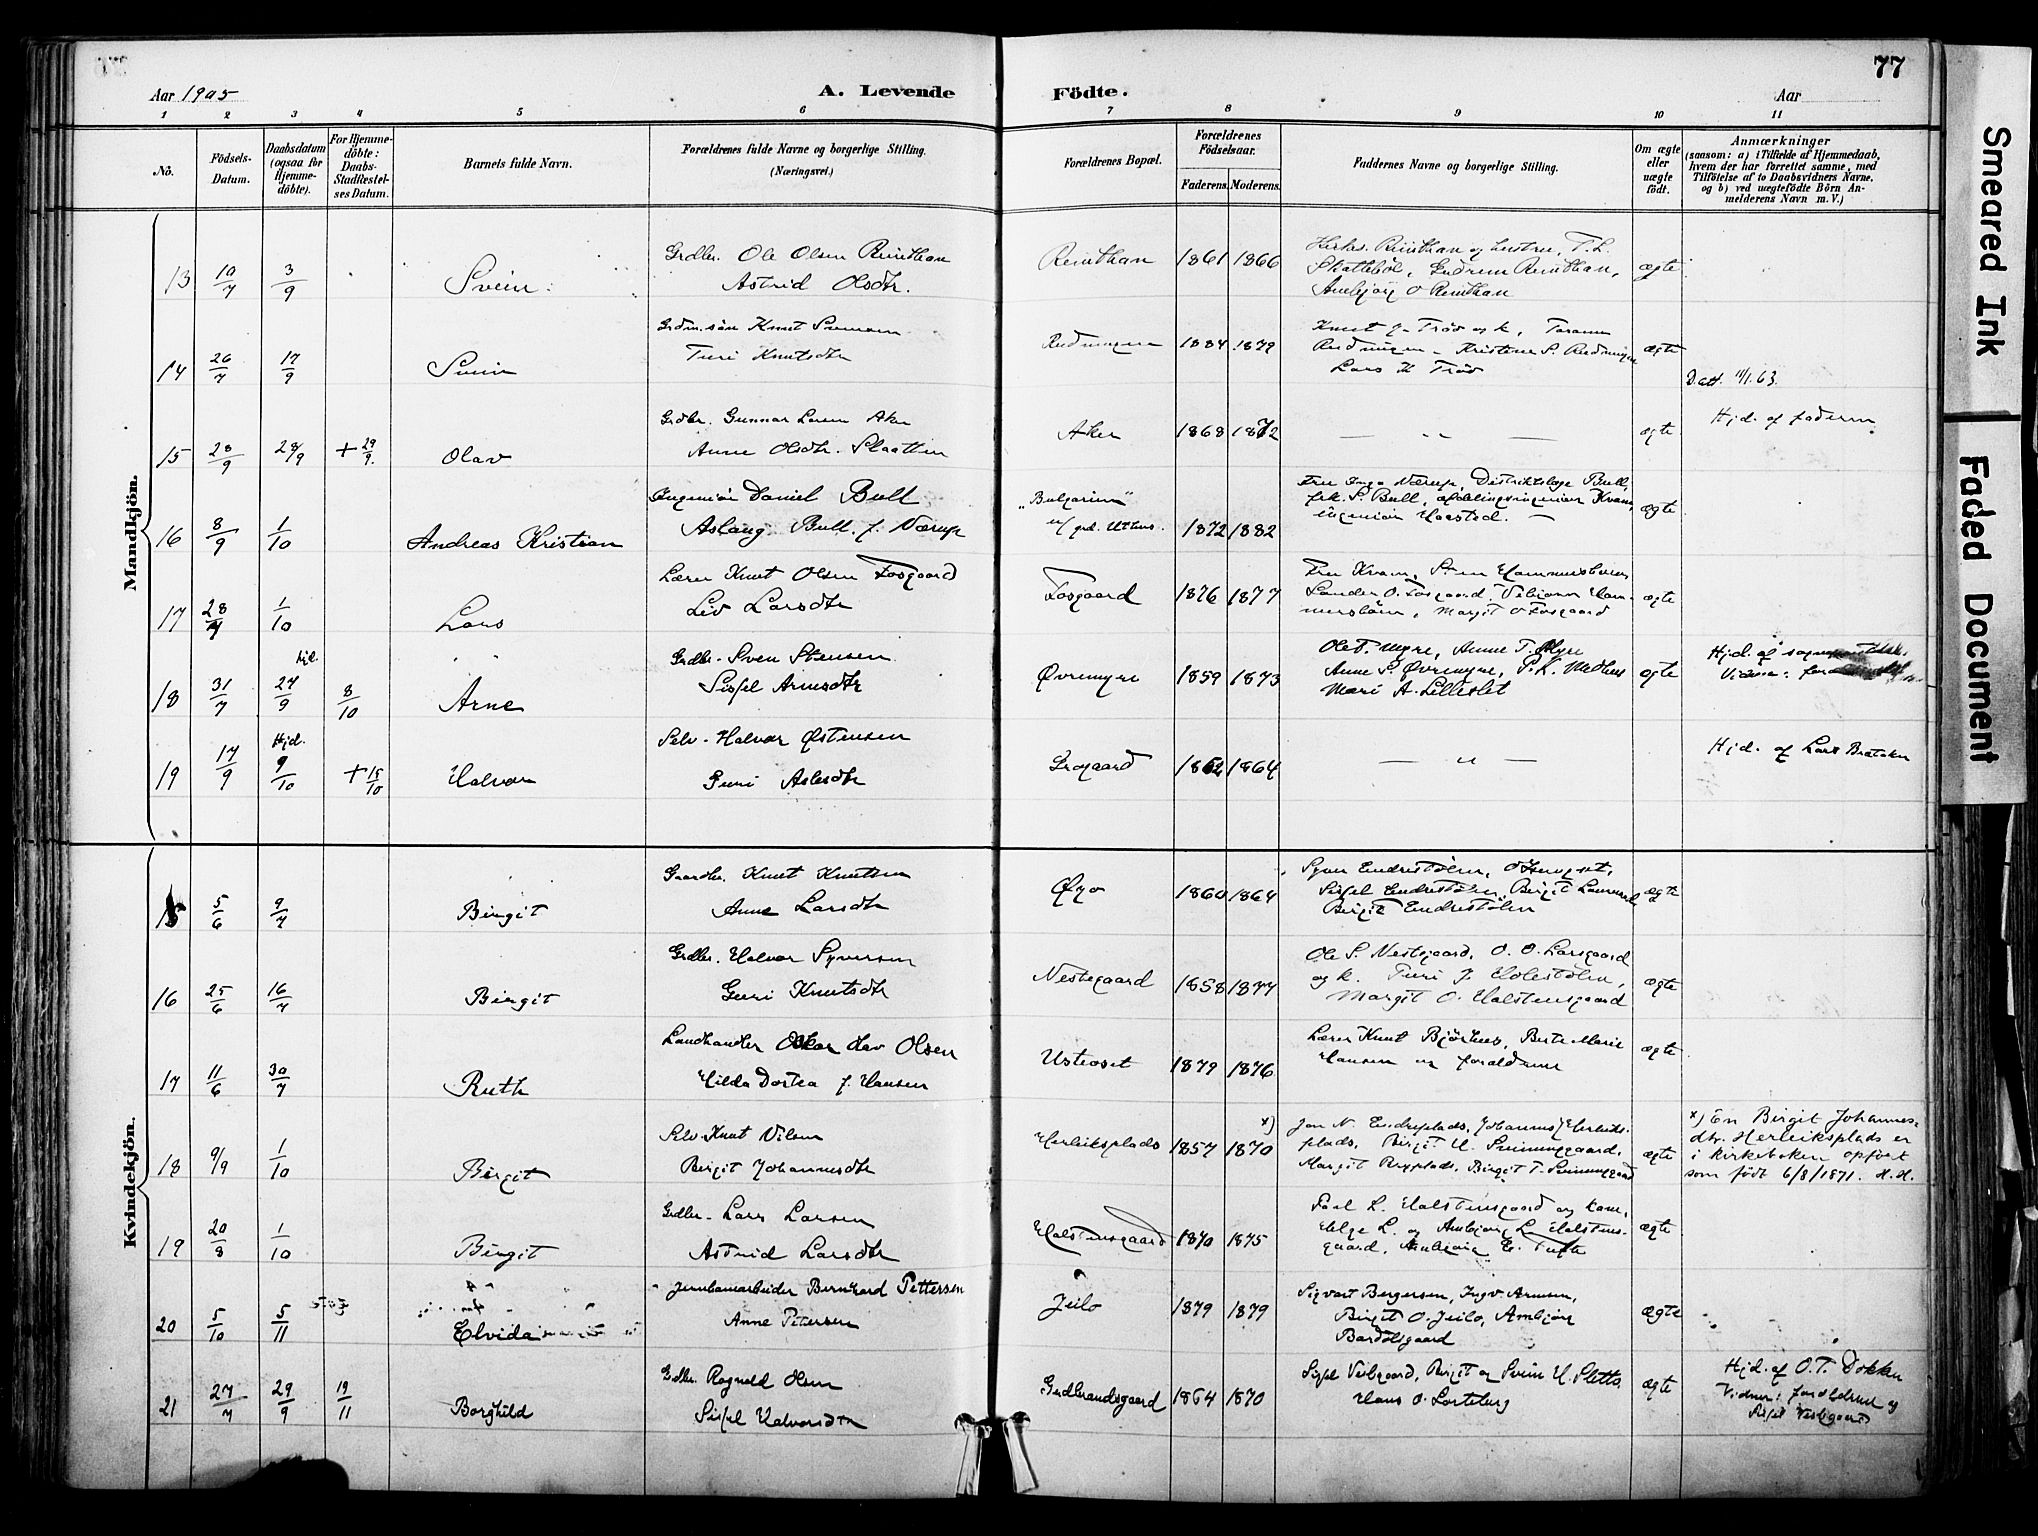 77
Aar 1905
A. Levende Födte.
Aar
1 2 3 4 5 6 7 8 9 10 11
No.
Födsels-Datum.
Daabsdatum (ogsaa for Hjemme-döbte).
For Hjemme-döbte: Daabs-Stadfæstel-ses Datum.
Barnets fulde Navn.
Forældrenes fulde Navne og borgerlige Stilling. (Næringsvei.)
Forældrenes Bopæl.
Forældrenes Födselsaar.
Faderens. Moderens.
Faddernes Navne og borgerlige Stilling.
Om ægte eller uægte födt.
Anmærkninger
(saasom: a) i Tilfælde af Hjemmedaab,
hvem der har forrettet samme, med
Tilföielse af to Daabsvidners Navne,
og b) ved uægtefödte Börn An-
melderens Navn m. V.)
Mandkjön.
13 10/7 3/9 Svein
Grdbr. Ole Olsen
Astrid Olsdtr.
1861 1866
ægte
14 26/7 17/9 Svein
Knut
Turi Knutsdtr
1884 1879
Lars K Tröo
ægte
Datt. 11/1.63.
15 28/9 28/9 + 29/9. Olav
Grdbr. Gunnar Larsen Aker
Anne Olsdtr. Slaatten
Aker 1868 1872
— " —
ægte
Hjd. af faderen
16 8/9 1/10 Andreas Kristian
Ingeniör Daniel Bull
Aslaug Bull f. Nærup
"Bulgarien"
1872 1882
Fru Inga Nærup, Distriktslæge Bull,
frk. S. Bull, afdelingsingeniør Kvam,
ingeniør
ægte
17 28/7 1/10 Lars
Lærer Knut Olsen Fosgaard
Liv Larsdtr
Fosgaard 1876 1877
Fru Kvam,
Sander O. Fosgaard,
Margit O Fosgaard
ægte
18 31/7 hjd. 24/9 8/10 Arne
Grdbr. Sven Stensen
Sissel Arnesdtr
Øvremyre 1859 1873
Ole T. Myre, Anne T. Myre
Anne S. Øvremyre, P. K.
Mari A. Lilleslet
ægte
Hjd. af
Vidner:
19 17/9 Hjd. 9/10 + 15/10 Halvor
Selv. Halvor Østensen
Guri Aslesdtr
Grogaard 1862 1864
— " —
Hjd. af Lars Brataker
Kvindekjön.
15 5/6 9/7 Birgit
Gaardbr. Knut Knutsen
Anne Larsdtr
Øyo 1860 1864
Sissel Endrestölen, Birgit
Birgit Endrestölen
ægte
16 25/6 16/7 Birgit
Grdbr. Halvor Syversen
Guri Knutsdtr
Nestegaard 1858 1877
Ole S. Nestegaard, O. O. Larsgaard
og k. Turi J. Holestölen,
Margit O. Halstensgaard
ægte
17 11/6 30/7 Ruth
Landhandler Oskar Olav Olsen
Hilda Dortea f. Hansen
Usteoset 1879 1876
Lærer Knut Bjørhus, Berte Marie
Hansen og forældrene
ægte
18 9/9 1/10 Birgit
Selv. Knut Nilsen
Birgit Johannesdtr
Herleiksplads 1857 x) 1870
Jon N. Endreplads, Johannes J Herleiks-
plads,
ægte
x) En Birgit Johannes-
dtr. Herleiksplads er
i kirkeboken opført
som født 6/8/1871. H.H.
19 20/8 1/10 Birgit
Grdbr. Lars Larsen
Astrid Larsdtr
Halstensgaard 1870 1875
L. Halstensgaard og kone,
Helge L. og Ambjørg L. Halstens-
gaard, Ambjørg E. Tufte
ægte
20 5/10 5/11 Elvida
Jernbanearbeider Bernhard Pettersen
Anne Petersen
Jeilo 1879 1879
Sigvart Bergersen, Ingv. Arnesen,
Birgit O. Jeilo, Ambjørg
Bardölsgaard
ægte
21 27/7 29/9 19/11 Borghild
Grdbr. Ragnald Olsen
Sissel Halvorsdtr
Gudbrandsgaard 1864 1870
Sissel Veslegaard, Birgit og Svein H. Sletto
Hans O. Lorteberg
ægte
Hjd. af O. T. Dokken
Vidner: forældrene og
Sissel Veslegaard
Smeared Ink
Faded Document